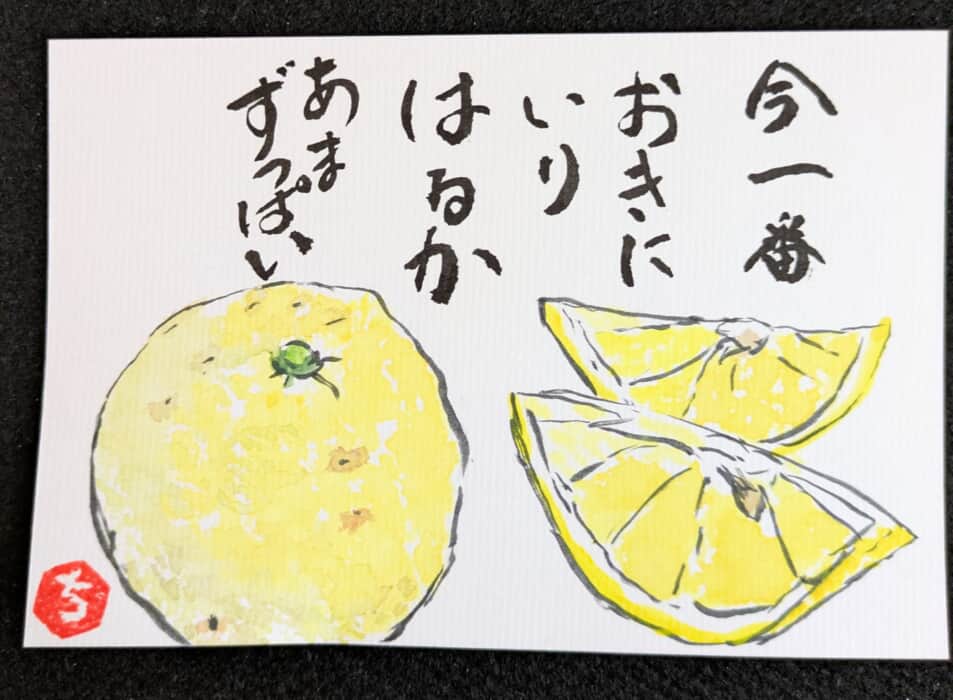 今一番
おきに
いり
はるか
あま
ずっぱい
ち